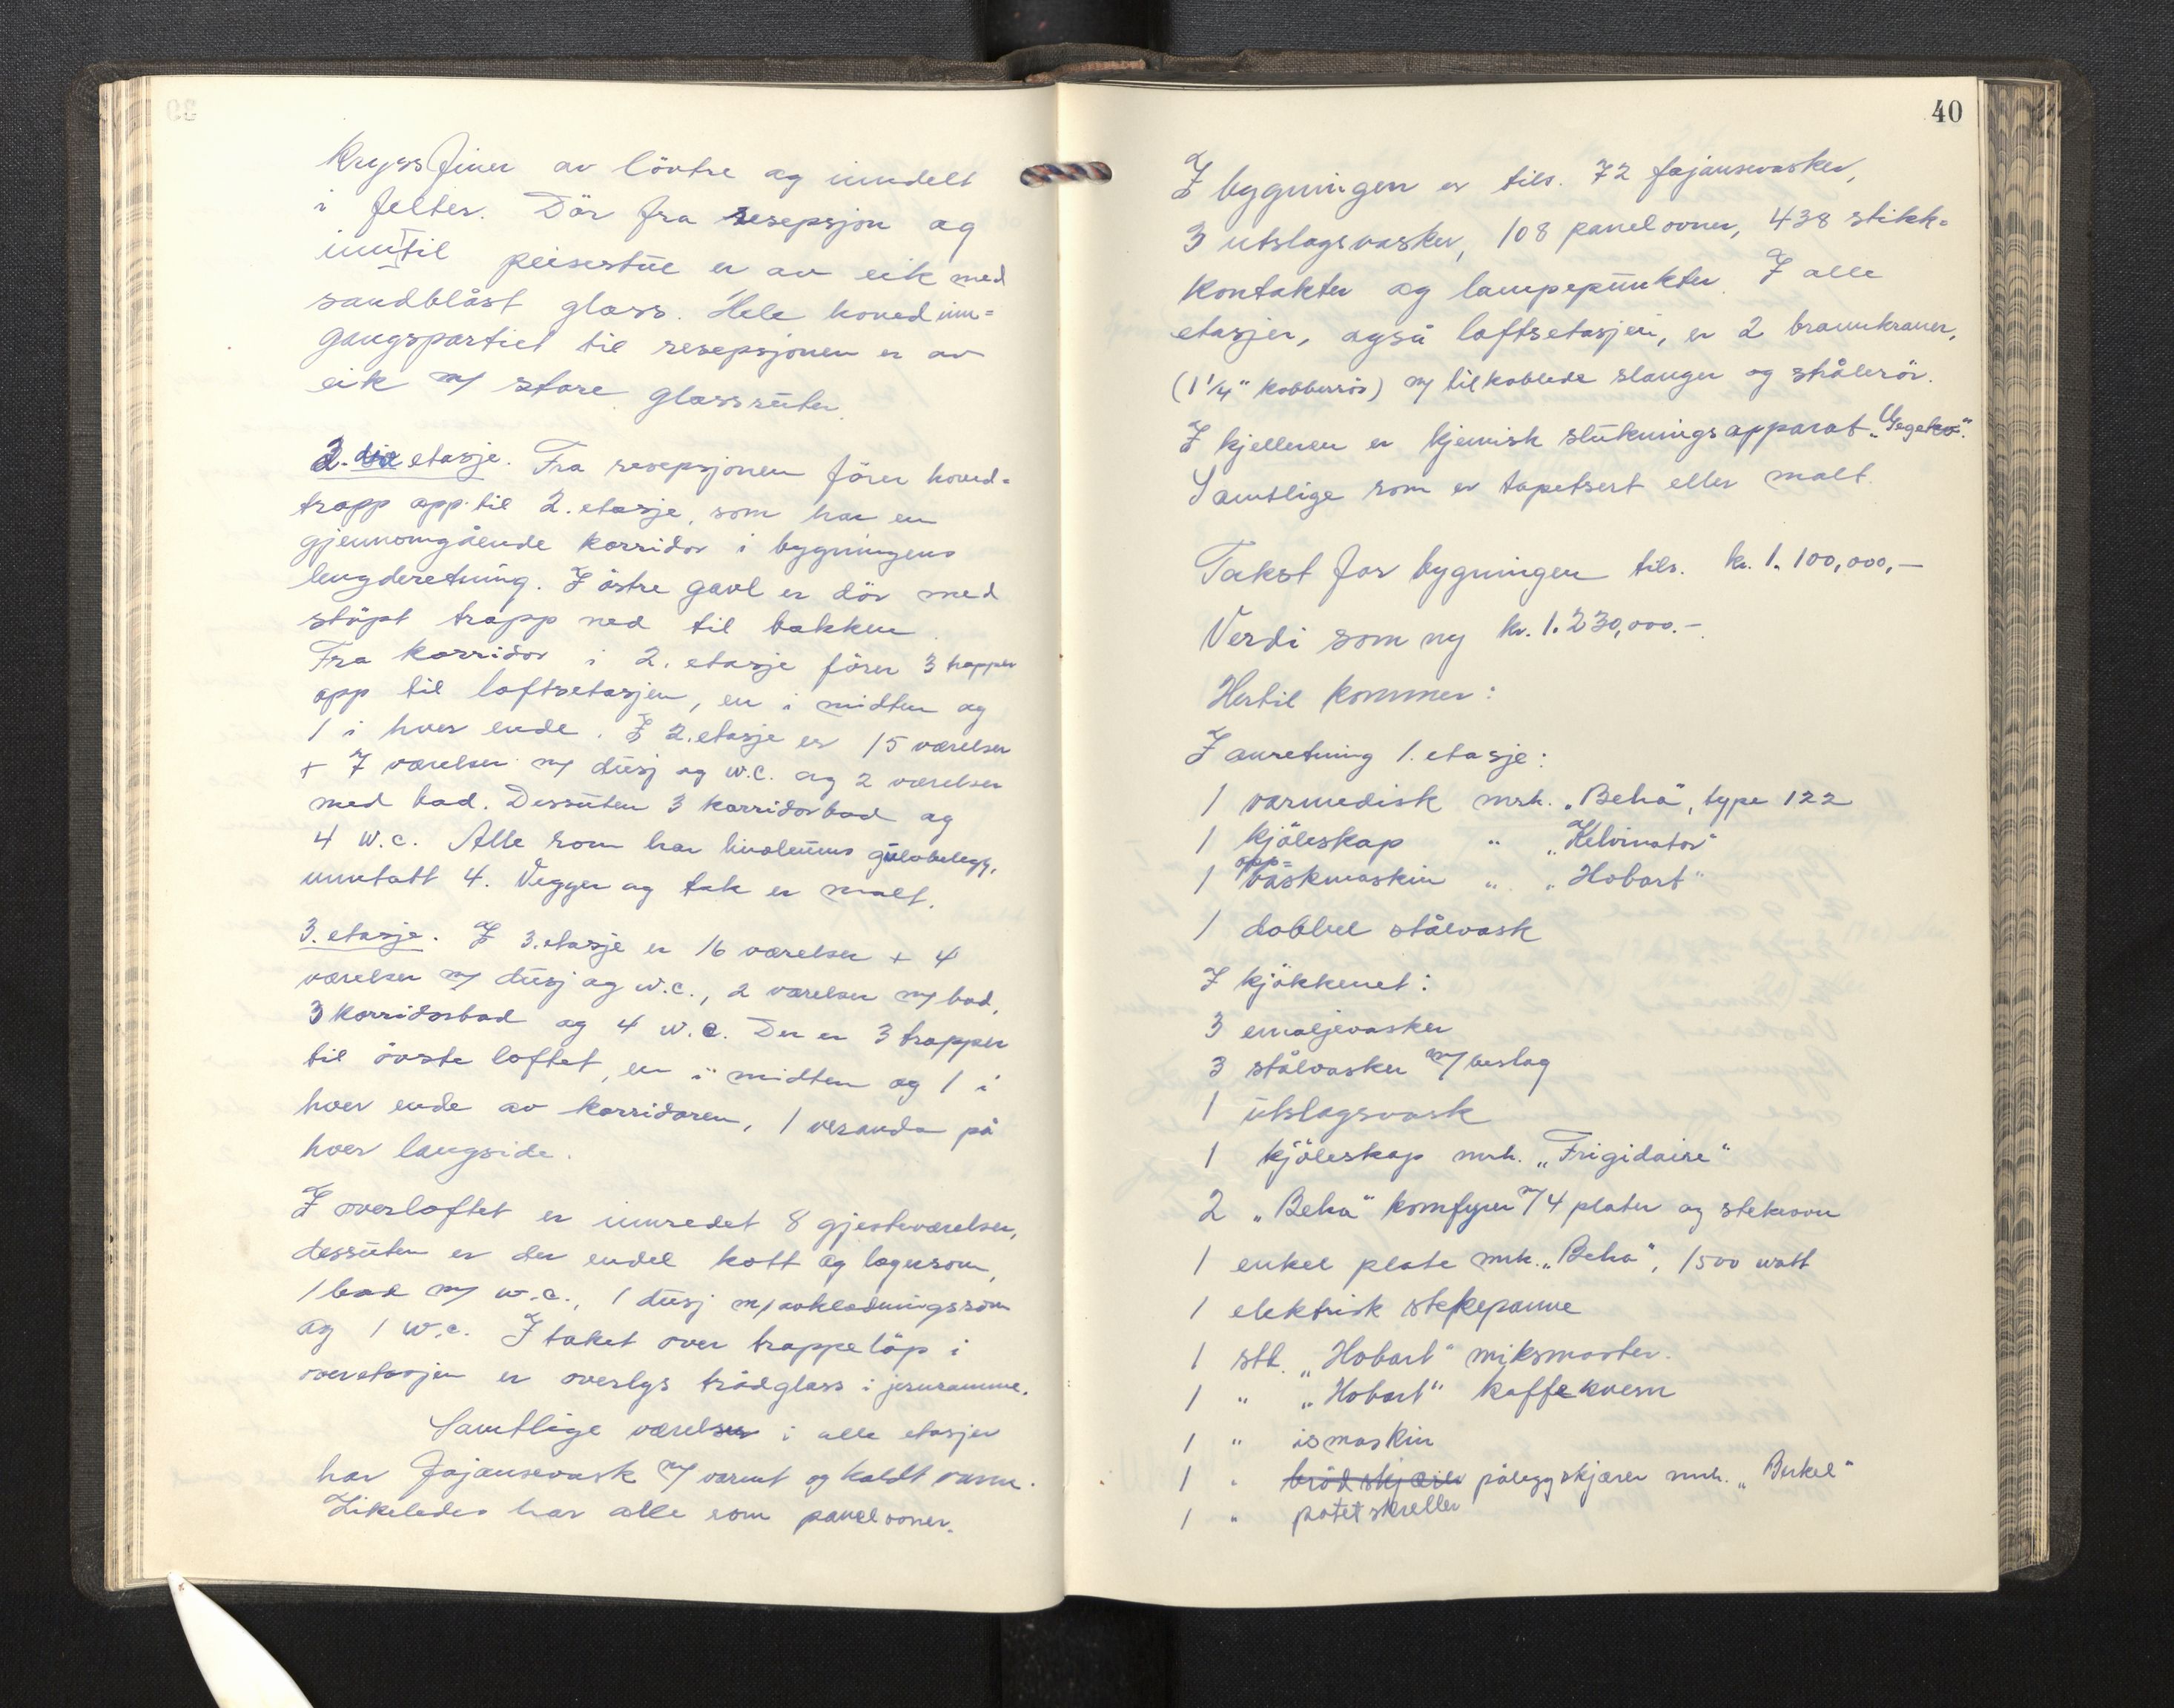 kryssfiner av lövtre og inndelt
i felter. Dör fra resepsjon og
inntil peisestue er av eik med
sandblåst glass. Hele hovedinn=
gangspartiet til resepsjonen er av
eik m/ store glassruter.
2. etasje. Fra resepsjonen förer hoved=
trapp opp til 2. etasje, som har en
gjennomgående korridor i bygningens
lengderetning. I östre gavl er dör med
stöpt trapp ned til bakken.
Fra korridor i 2. etasje förer 3 trapper
opp til loftsetasjen, en i midten og
1 i hver ende. I 2. etasje er 15 værelser
+ 7 værelser m/ dusj og w.c. og 2 værelser
med bad. Dessuten 3 korridorbad og
4 w.c. Alle rom har linoleums gulvbelegg,
unntatt 4. Vegger og tak er malt.
3. etasje. I 3. etasje er 16 værelser + 4
værelser m/ dusj og w.c., 2 værelser m/ bad,
3 korridorbad og 4 w.c. Der er 3 trapper
til övste loftet, en i midten og 1 i
hver ende av korridoren, 1 veranda på
hver langside.
I overloftet er innredet 8 gjesteværelser,
dessuten er der endel kott og lagerrom,
1 bad m/ w.c., 1 dusj m/ avkledningsrom
og 1 w.c. I taket over trappelöp i
overetasjen er overlys trådglass i jernramme.
Samtlige værelser i alle etasjer
har fajansevask m/ varmt og kaldt vann.
Likeledes har alle rom panelovner.
40
I bygningen er tils. 72 fajansevasker,
3 utslagsvasker, 108 panelovner, 438 stikk=
kontakter og lampepunkter. I alle
etasjer, også loftsetasjen, er 2 brannkraner,
(1 1/4" kobberrör) m/ tilkoblede slanger og strålerör.
I kjelleren er kjemisk slukningsapparat
Samtlige rom er tapetsert eller malt.
Takst for bygningen tils. kr. 1.100,000,-
Verdi som ny kr. 1.230,000.-
Hertil kommer:
I anretning 1. etasje:
1 varmedisk mrk. „Beha", type 122
1 kjöleskap " „Kelvinator"
1 opp=vaskmaskin " „Hobart"
1 dobbel stålvask
I kjökkenet:
3 emaljevasker
3 stålvasker m/ beslag
1 utslagsvask
1 kjöleskap mrk. „Frigidaire"
2 „Beha" komfyrer m/ 4 plater og stekeovn
1 enkel plate mrk. „Beha", 1500 watt
1 elektrisk stekepanne
1 stk. „Hobart" miksmaster.
1 " „Hobart" kaffekvern
1 " ismaskin
1 " brödskjærer påleggskjærer mrk. „Berkel"
1 " potetskreller